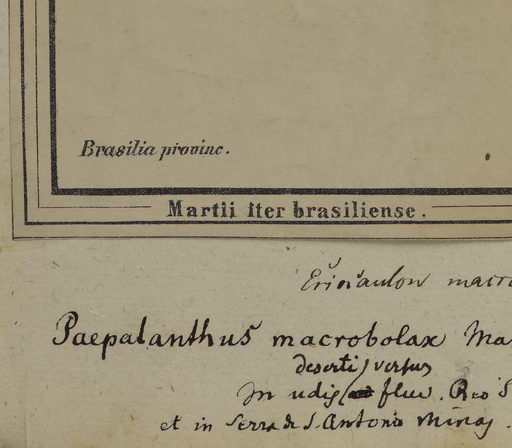 Brasilia provinc.
Martii Iter brasiliense.
Eriocaulon macro
Paepalanthus macrobolax Ma
deserti versus
In udis fluv. Rio S
et in Serra de S. Antonio Minas.